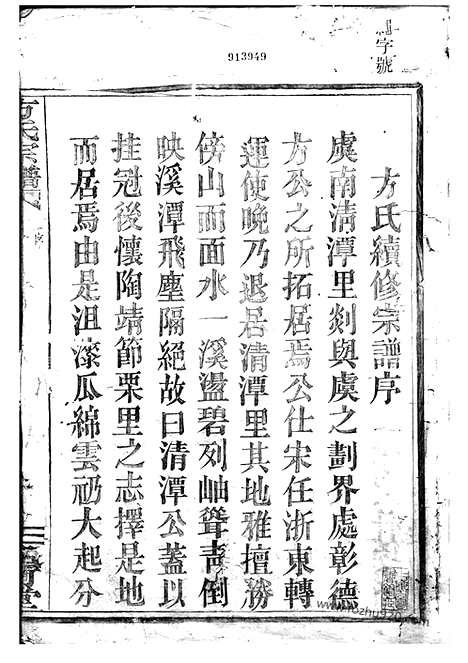 字號
913949
方氏續修宗譜序
虞南清潭里剡與虞之劃界處彰德
方公之所拓居焉公仕宋任浙東轉
運使晚乃退居清潭里其地雅擅勝
傍山而面水一溪盪碧列岫聳青倒
映溪潭飛塵隔絕故曰清潭公蓋以
挂冠後懷陶靖節栗里之志擇是地
而居焉由是沮漆瓜綿雲礽大起分
方氏宗譜
堂